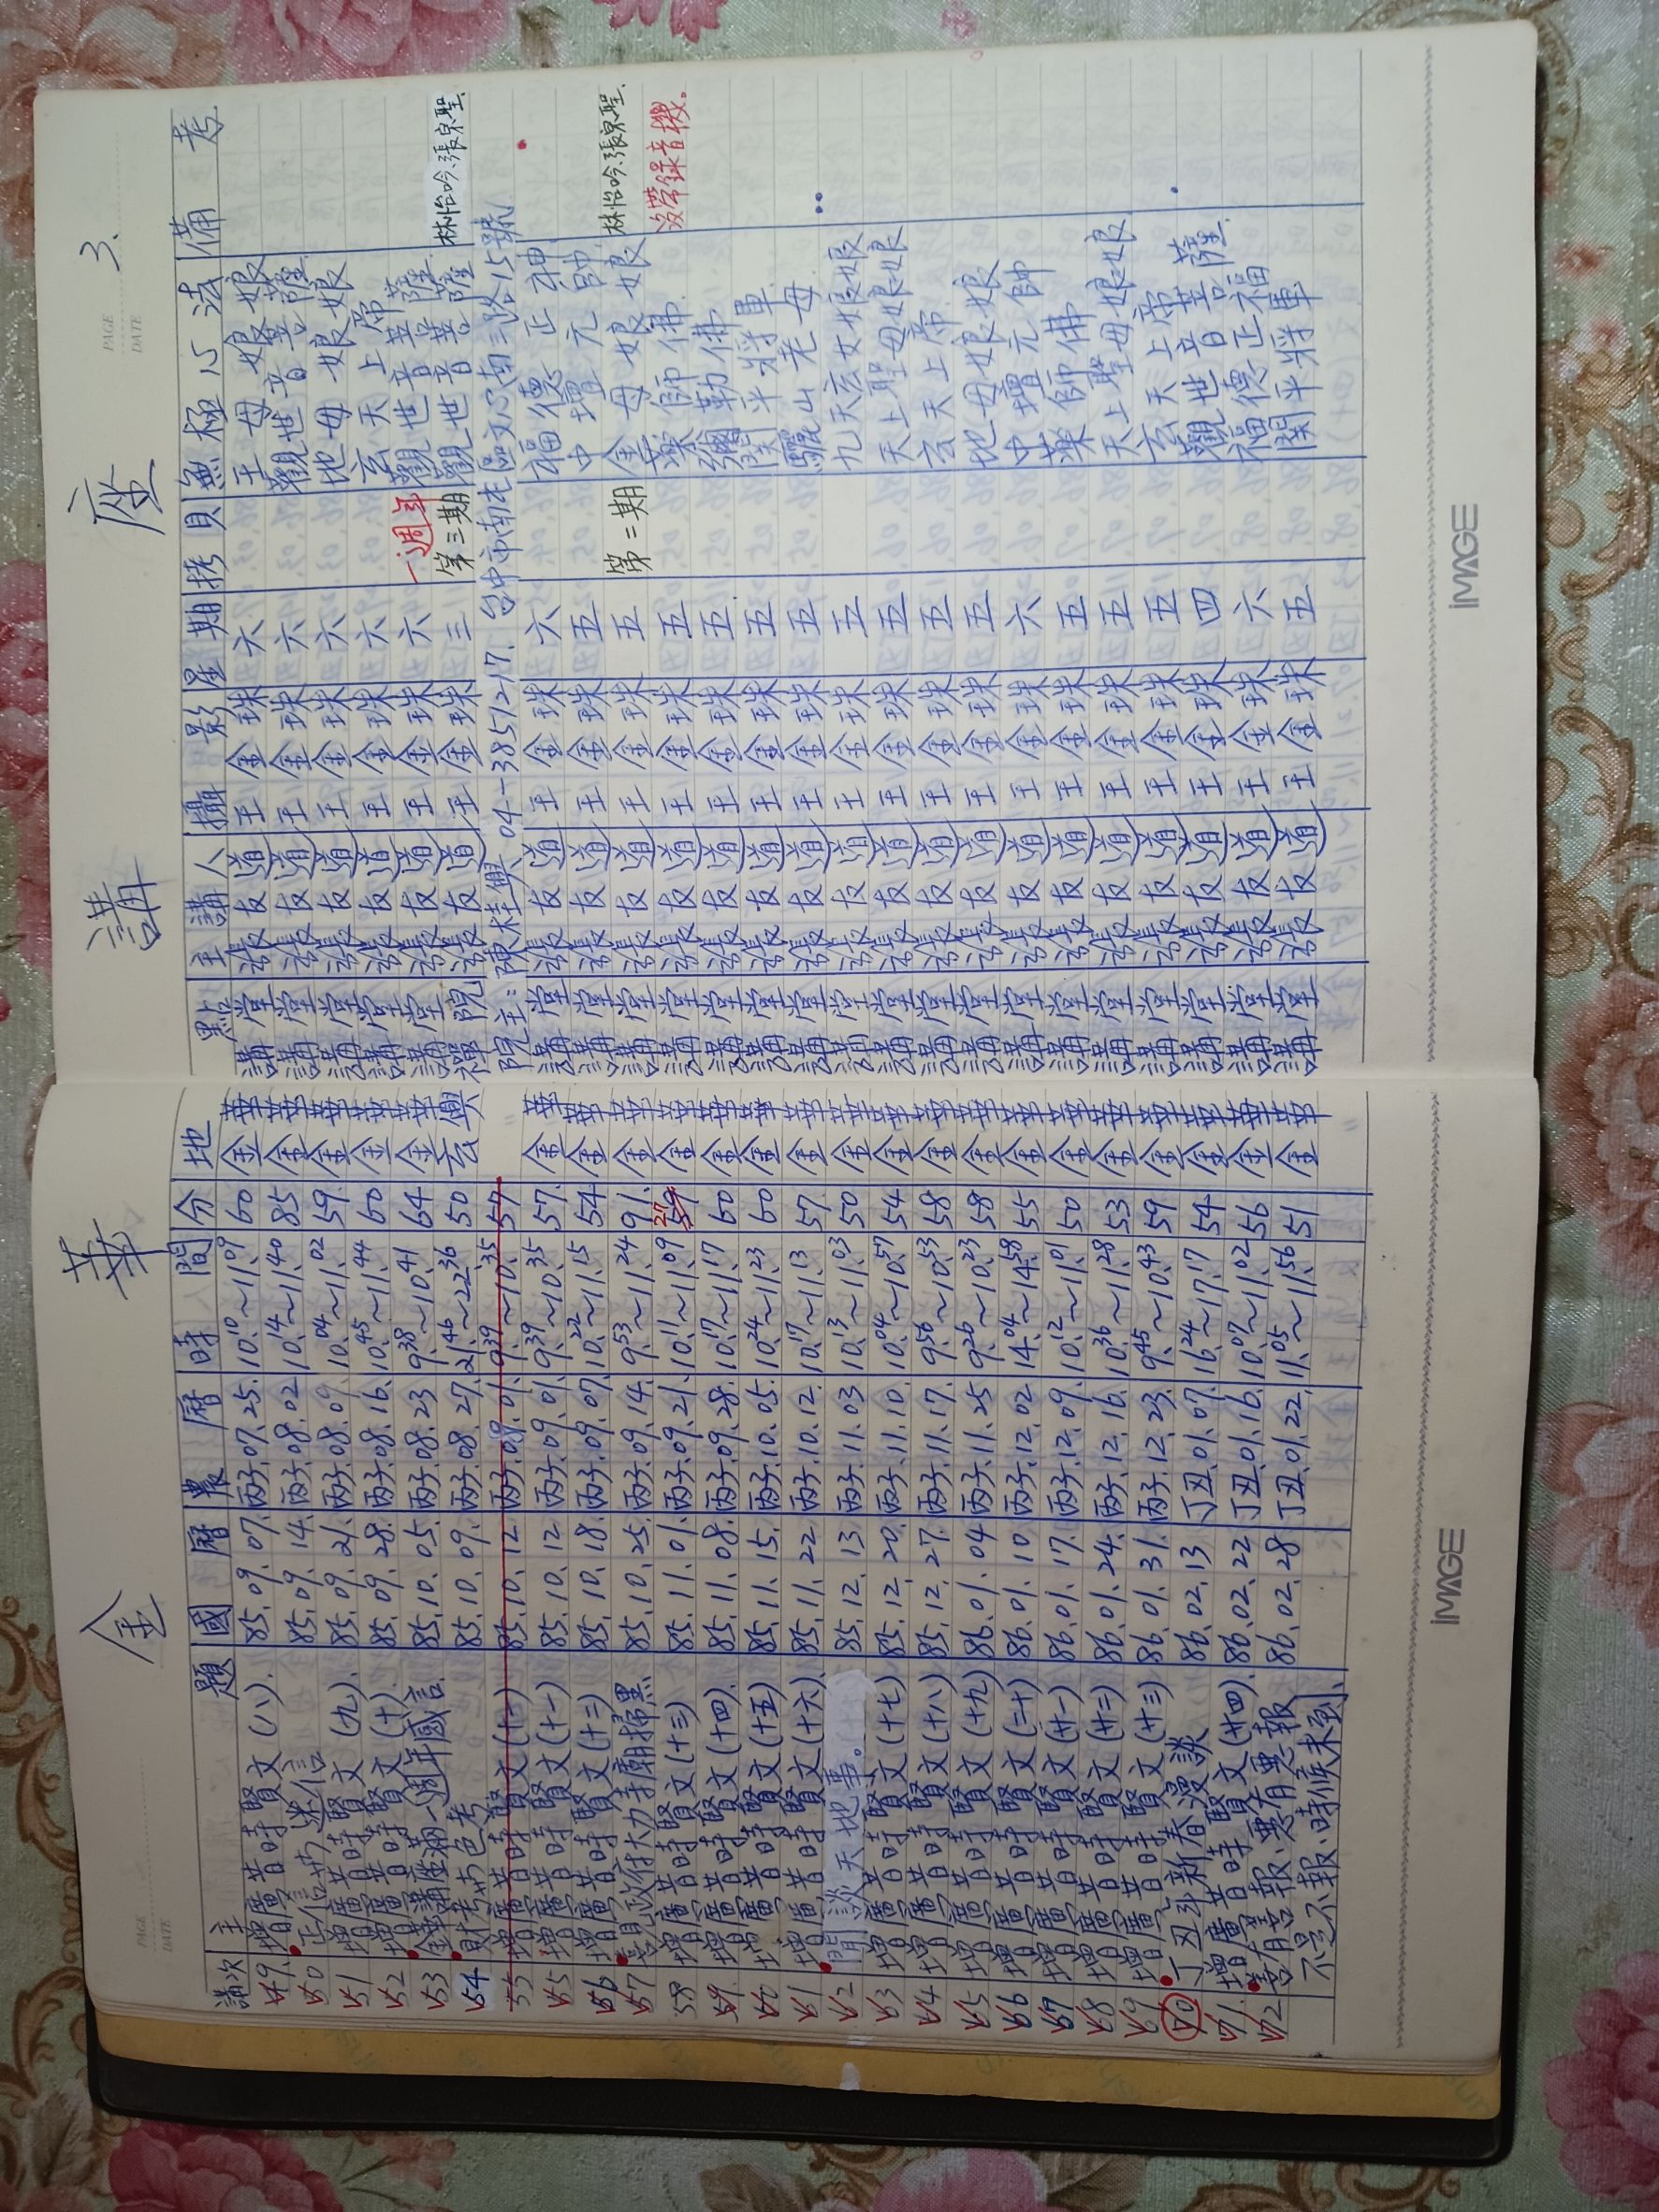 金 華 講 座 3.
PAGE
DATE
PAGE
DATE
講次 主 題 國 曆 農 曆 時 間 分 地 點 主 講 人 攝 影 星 期 拷 貝 無 極 心 法 備 考
49. 增廣昔時賢文(八). 85. 09. 07. 丙子. 07. 25. 10.10~11.09 60 金華講堂 張友(道) 王金珠 六 王母娘娘
50 正信與迷信 85. 09. 14. 丙子. 08. 02 10.14~11.40 85 金華講堂 張友(道) 王金珠 六 觀世音菩薩
51 增廣昔時賢文(九). 85. 09. 21. 丙子. 08. 09. 10.04~11.02 59. 金華講堂 張友(道) 王金珠 六 地母娘娘
52 增廣昔時賢文(十). 85. 09. 28. 丙子. 08. 16. 10.45~11.44 60 金華講堂 張友(道) 王金珠 六 玄天上帝
53 金華講座滿一週年感言 85. 10. 05. 丙子. 08. 23 9.38~10.41 64 金華講堂 張友(道) 王金珠 六 一週年 觀世音菩薩
54 財與色 85. 10. 09. 丙子. 08. 27. 21.46~22.36 50 玄興禪院 張友(道) 王金珠 三 第三期 觀世音菩薩 林怡吟、張泉聖.
55 增廣昔時賢文(十一) 85. 10. 12 丙子. 09. 01. 9.39~10.35 57 院主:陳桂興、04-3851217. 台中市南屯區文心南三路15號
55 增廣昔時賢文(十一) 85. 10. 12 丙子. 09. 01. 9.39~10.35 57. 金華講堂 張友(道) 王金珠 六 福德正神
56 增廣昔時賢文(十二) 85. 10. 18. 丙子. 09. 07. 10.22~11.15 54 金華講堂 張友(道) 王金珠 五 中壇元帥
57 喜見政府大力寺廟掃黑 85. 10. 25. 丙子. 09. 14. 9.53~11.24 91. 金華講堂 張友(道) 王金珠 五 第二期 金母娘娘 林怡吟、張泉聖.
58 增廣昔時賢文(十三). 85. 11. 01. 丙子. 09. 21. 10.11~11.09 59 金華講堂 張友(道) 王金珠 五 藥師佛 沒帶錄音機。
59. 增廣昔時賢文(十四). 85. 11. 08. 丙子. 09. 28. 10.17~11.17 60 金華講堂 張友(道) 王金珠 五 彌勒佛
60 增廣昔時賢文(十五) 85. 11. 15. 丙子. 10. 05. 10.24~11.23 60 金華講堂 張友(道) 王金珠 五 關平將軍
61 增廣昔時賢文(十六). 85. 11. 22 丙子. 10. 12. 10.17~11.13 57. 金華講堂 張友(道) 王金珠 五 驪山老母
62 閒談天地事。 85. 12. 13 丙子. 11. 03 10.13~11.03 50 金華講堂 張友(道) 王金珠 五 九天玄女娘娘
63 增廣昔時賢文(十七) 85. 12. 20. 丙子. 11. 10. 10.04~10.57 54 金華講堂 張友(道) 王金珠 五 天上聖母娘娘
64 增廣昔時賢文(十八) 85. 12. 27. 丙子. 11. 17. 9.56~10.53 58 金華講堂 張友(道) 王金珠 五 玄天上帝
65 增廣昔時賢文(十九) 86. 01. 04 丙子. 11. 25 9.26~10.23 58 金華講堂 張友(道) 王金珠 五 地母娘娘
66 增廣昔時賢文(二十) 86. 01. 10 丙子. 12. 02 14.04~14.58 55 金華講堂 張友(道) 王金珠 六 中壇元帥
67 增廣昔時賢文(廿一) 86. 01. 17. 丙子. 12. 09. 10.12~11.01 50 金華講堂 張友(道) 王金珠 五 藥師佛
68 增廣昔時賢文(廿二) 86. 01. 24. 丙子. 12. 16. 10.36~11.28 53 金華講堂 張友(道) 王金珠 五 天上聖母娘娘
69 增廣昔時賢文(十三) 86. 01. 31. 丙子. 12. 23. 9.45~10.43 59 金華講堂 張友(道) 王金珠 五 玄天上帝
70 丁丑年新春漫談 86. 02. 13 丁丑. 01. 07. 16.24~17.17 54 金華講堂 張友(道) 王金珠 四 觀世音菩薩
71. 增廣昔時賢文(廿四). 86. 02. 22 丁丑. 01. 16. 10.07~11.02 56 金華講堂 張友(道) 王金珠 六 福德正福
72 善有善報、惡有惡報 86. 02. 28 丁丑. 01. 22. 11.05~11.56 51 金華講堂 張友(道) 王金珠 五 關平將軍
不是不報、時候未到、
IMAGE
IMAGE